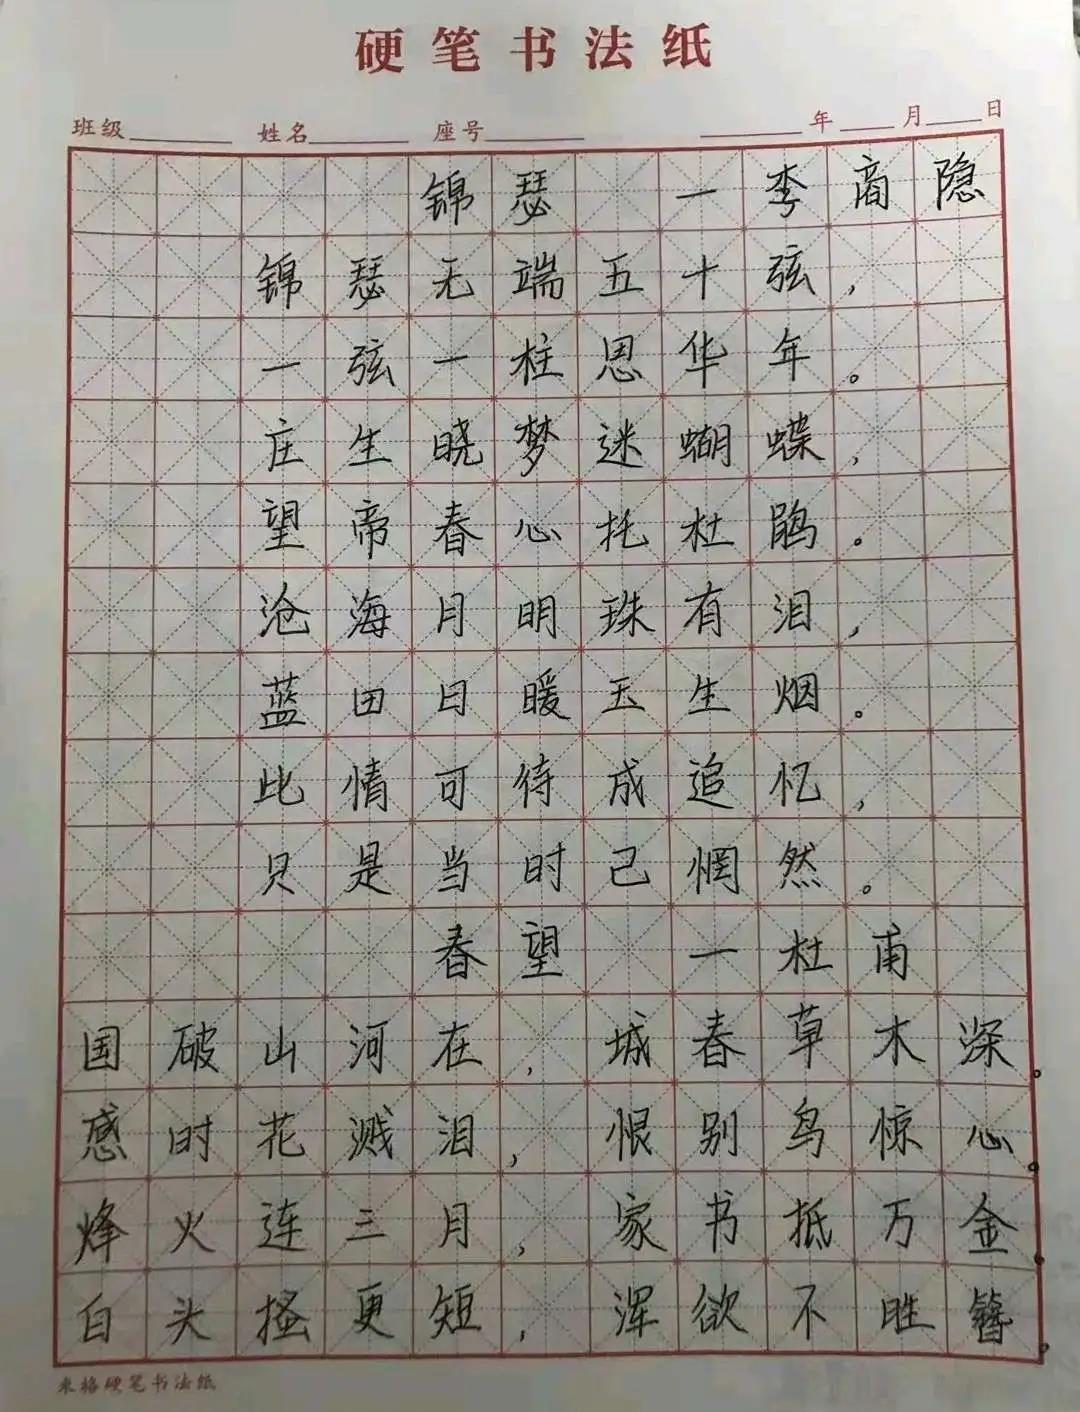 硬笔书法纸
班级 姓名 座号 年 月 日
锦瑟 一李商隐
锦瑟无端五十弦，
一弦一柱思华年。
庄生晓梦迷蝴蝶，
望帝春心托杜鹃。
沧海月明珠有泪，
蓝田日暖玉生烟。
此情可待成追忆，
只是当时己惘然。
春望 一杜甫
国破山河在，城春草木深。
感时花溅泪，恨别鸟惊心。
烽火连三月，家书抵万金。
白头搔更短，浑欲不胜簪。
米格硬笔书法纸